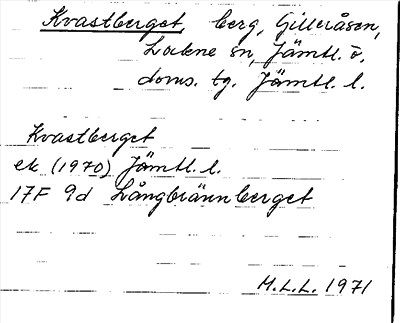 Kvastberget, berg, Gilleråsen,
Lockne sn, Jämtl. ö.
doms. tg. Jämtl. l.
Kvastberget
ek (1970) Jämtl. l.
17F 9d Långbrännberget
M.L.L. 1971